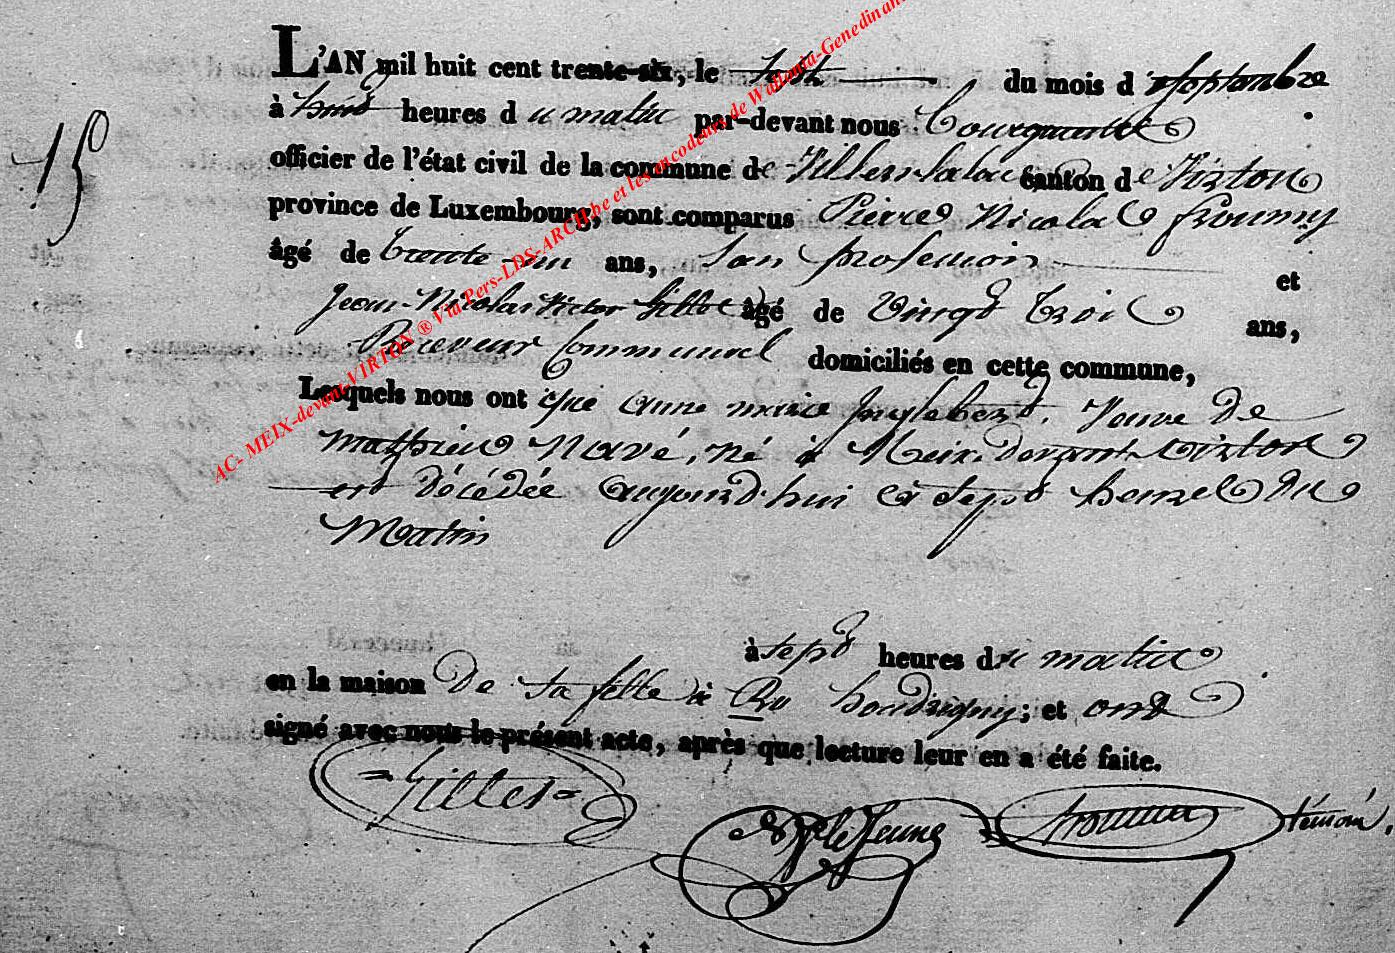 L'AN mil huit cent trente-six, le sept du mois d septembre
à huit heures du matin par-devant nous
15
officier de l'état civil de la commune de Villers la loue canton de Virton
province de Luxembourg, sont comparus Pierre Nicolas
âgé de trente-un ans, san profession et
Jean-Nicolas Victor Gilles âgé de vingt trois ans,
Receveur Communal domiciliés en cette commune,
Lesquels nous ont que anne marie Englebert, Veuve de
Mathieu Navé, né à Meix-devant-virton
est décédée aujourd'hui à sept heures du
Matin
à sept heures du matin
en la maison de sa fille à Ru houdrigny; et ont
signé avec nous le présent acte, après que lecture leur en a été faite.
Gilles lejeune témoin,
AC- MEIX-devant-VIRTON ® Via Pers-LDS-ARCH.be et les encodeurs de Wallonia-Genedinant